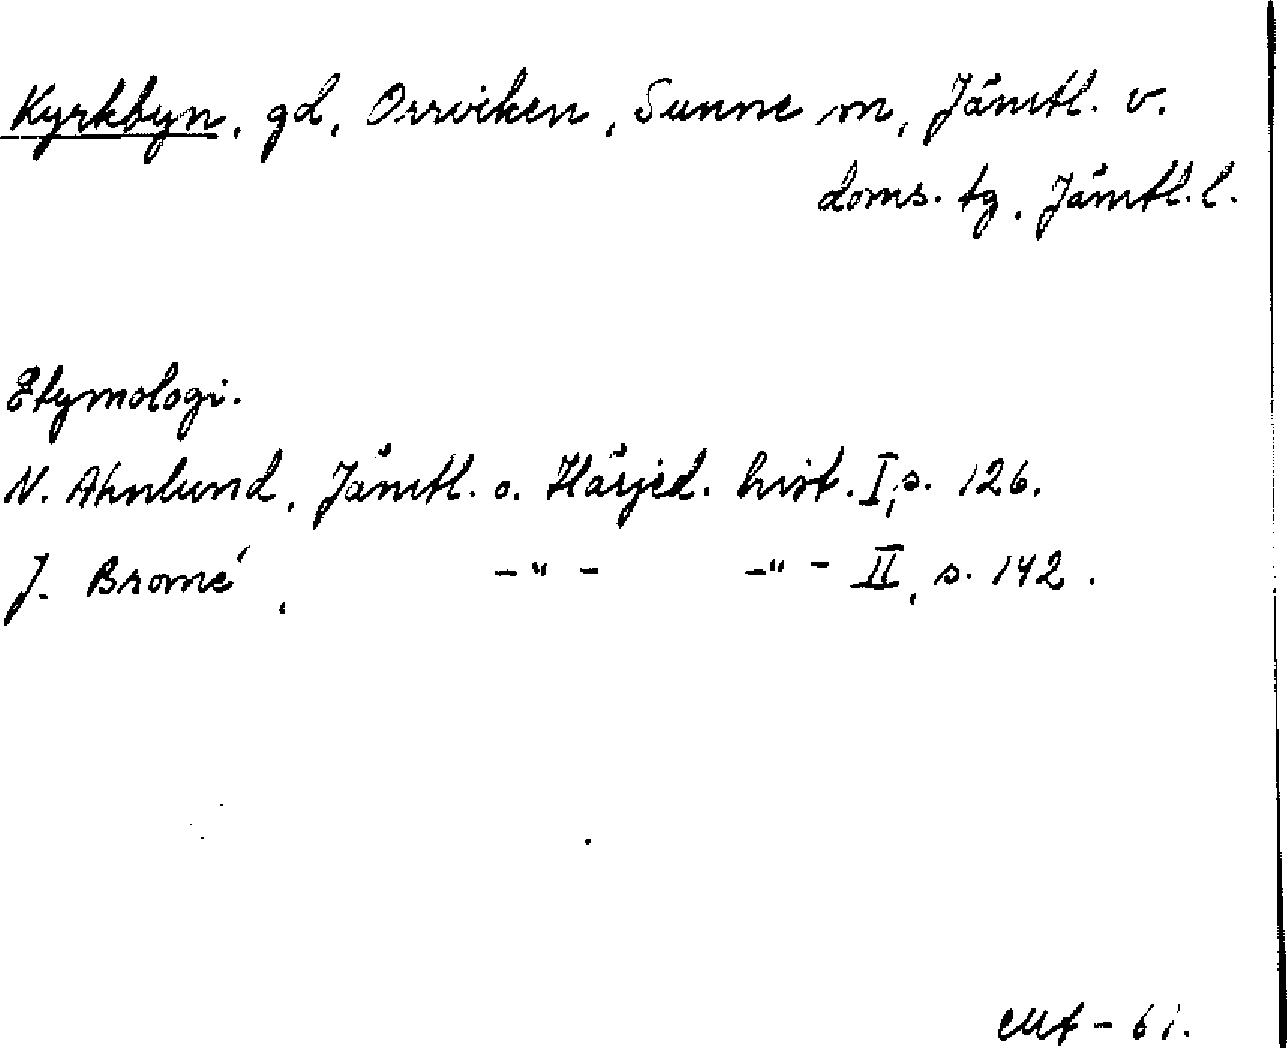 Kyrkbyn, gd, Orrviken, Sunne sn, Jämtl. v.
doms. tg, Jämtl. l.
Etymologi.
N. Ahnlund, Jämtl. o. Härjed. hist. I, s. 126.
J. Bromé, -"- -"- II, s. 142.
- 61.